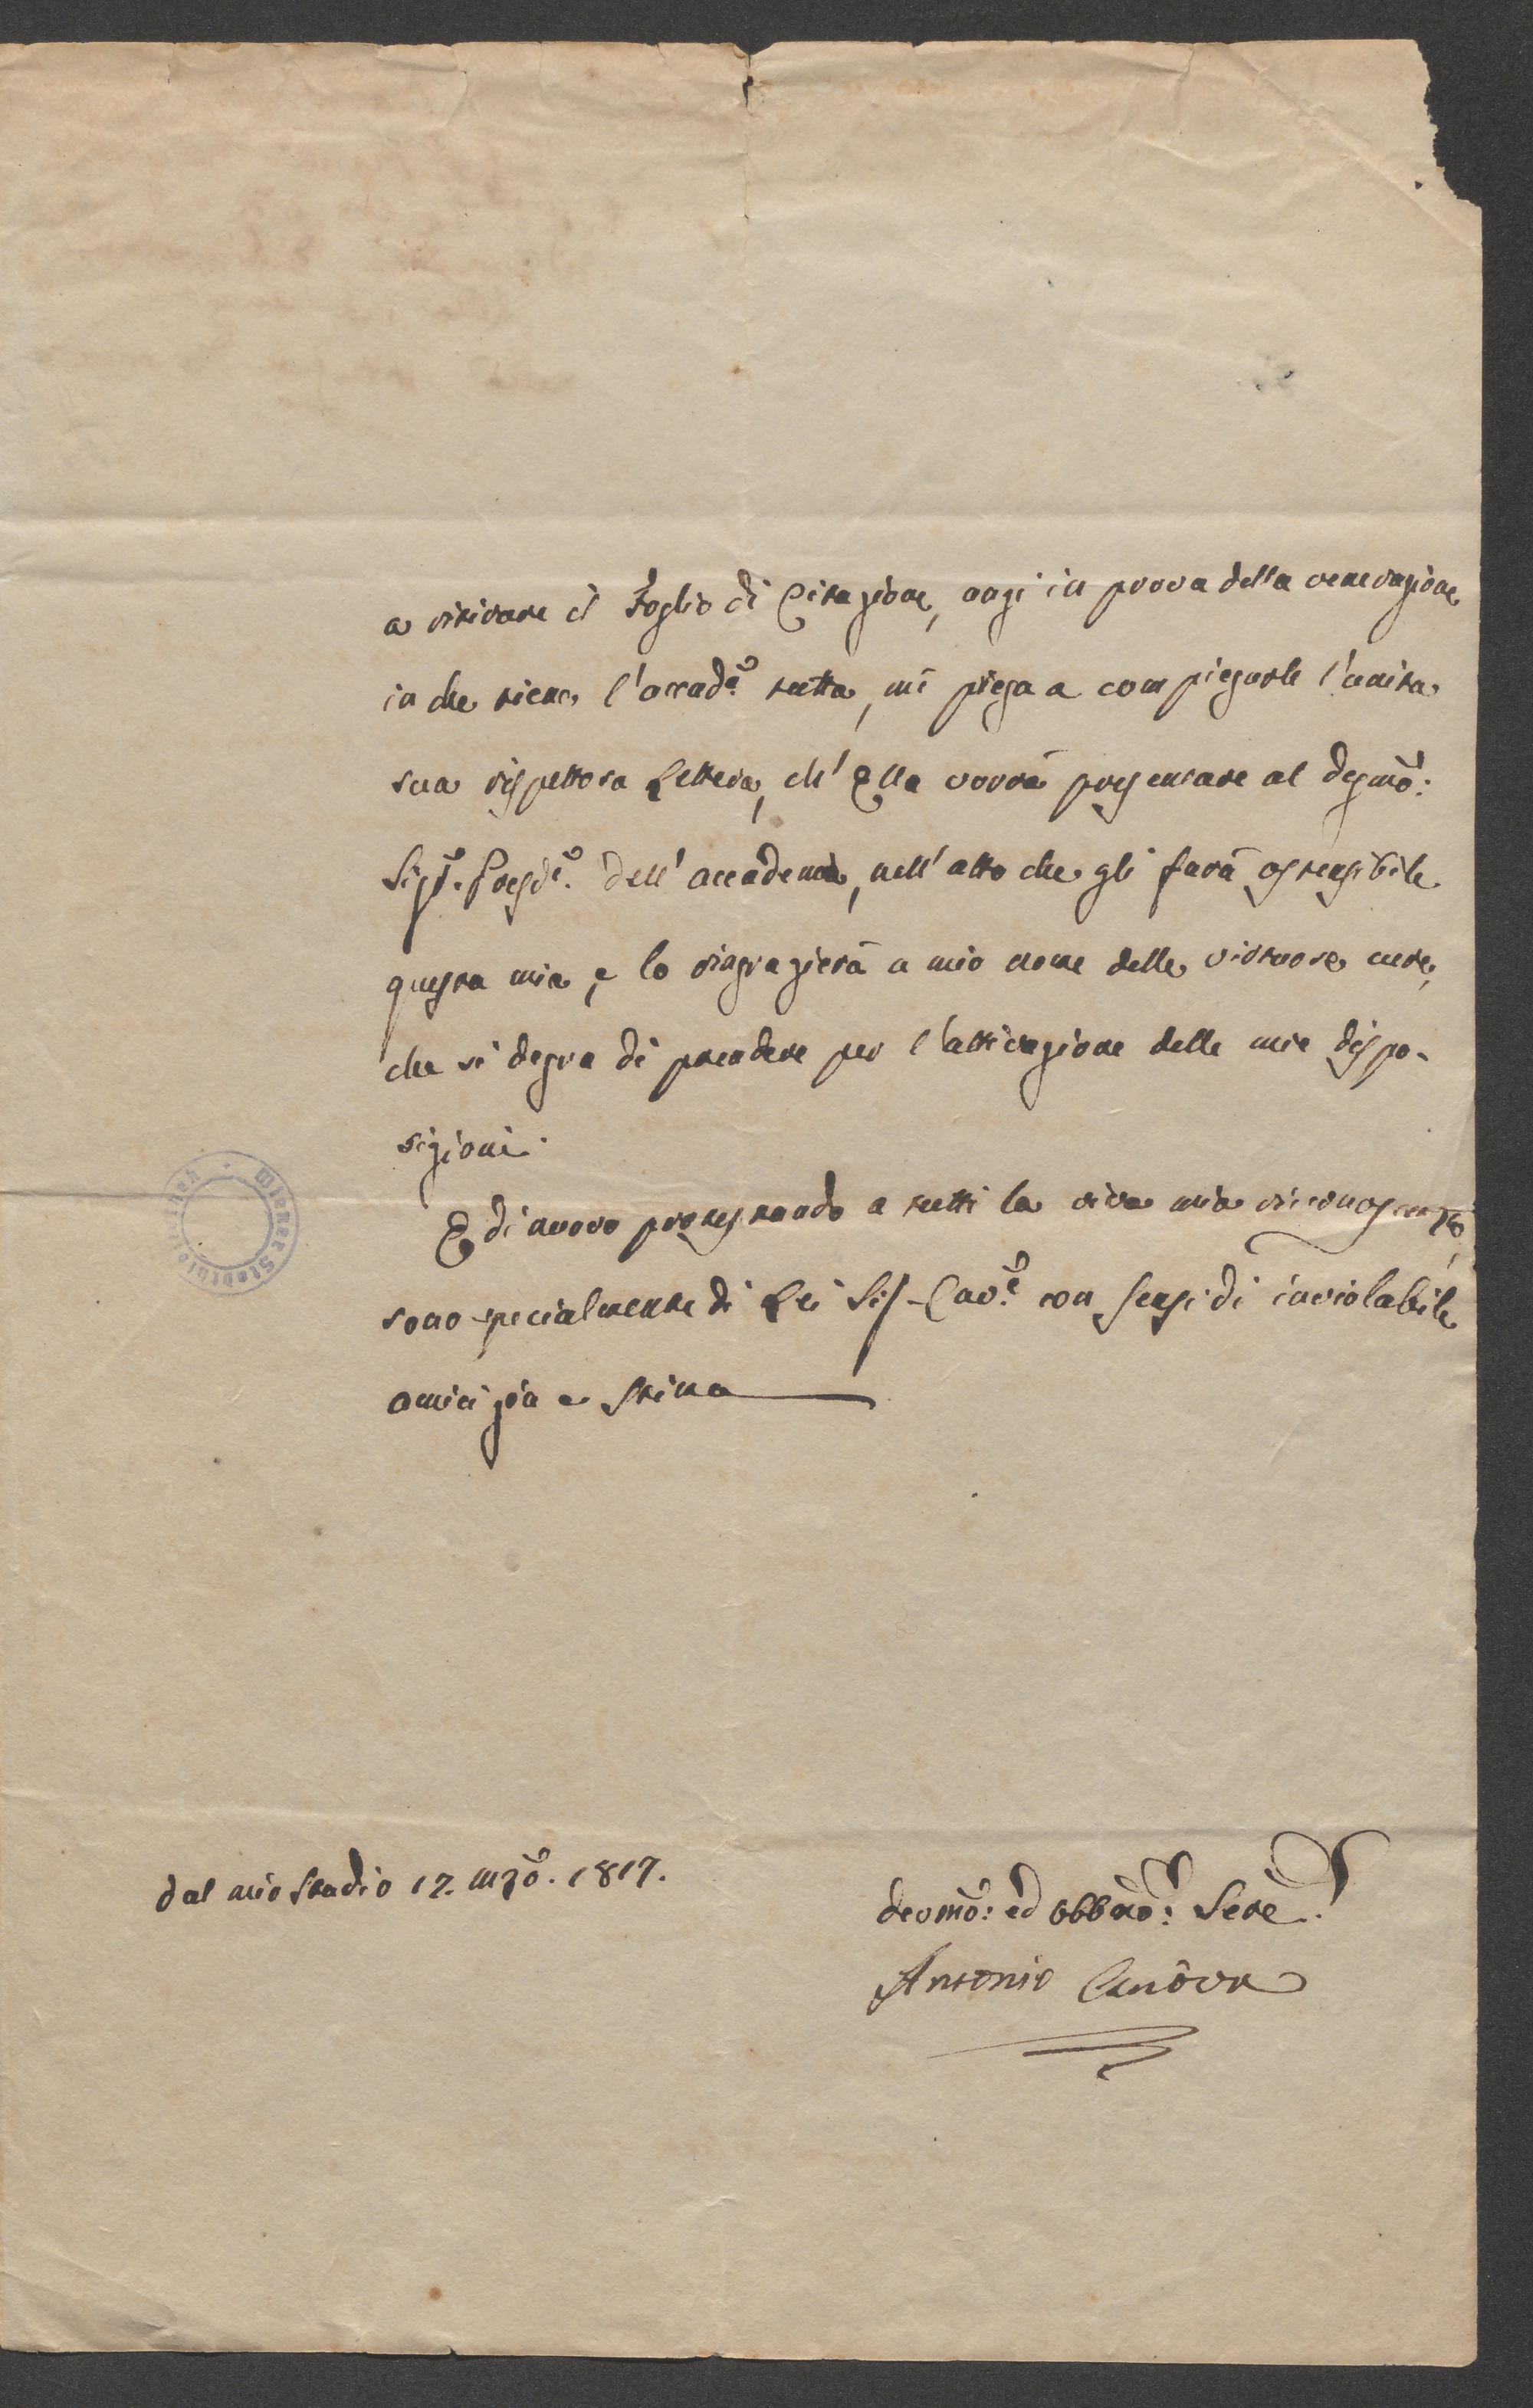 a ritirare il Foglio di Citazione, anzi in prova della venerazione
in che tiene l'accad.a tutta, mi prega a compiegarle l'unita
sua rispettosa Lettera, ch'Ella vorrà presentare al degmo:
Sigr. Presde. dell'accademia, nell'atto che gli farà ostensibile
questa mia, e lo ringrazierà a mio nome delle virtuose cure,
che si degna di prendere per l'attivazione delle mie dispo-
sizioni.
E di nuovo protestando a tutti la viva mia riconoscenza,
sono specialmente di Lei Sig. Cav.e con sensi di inviolabile
amicizia e stima
dal mio studio 17. mzo. 1817.
devmo: ed obbmo: Serre.
Antonio Canova
Wiener Stadtbibliothek